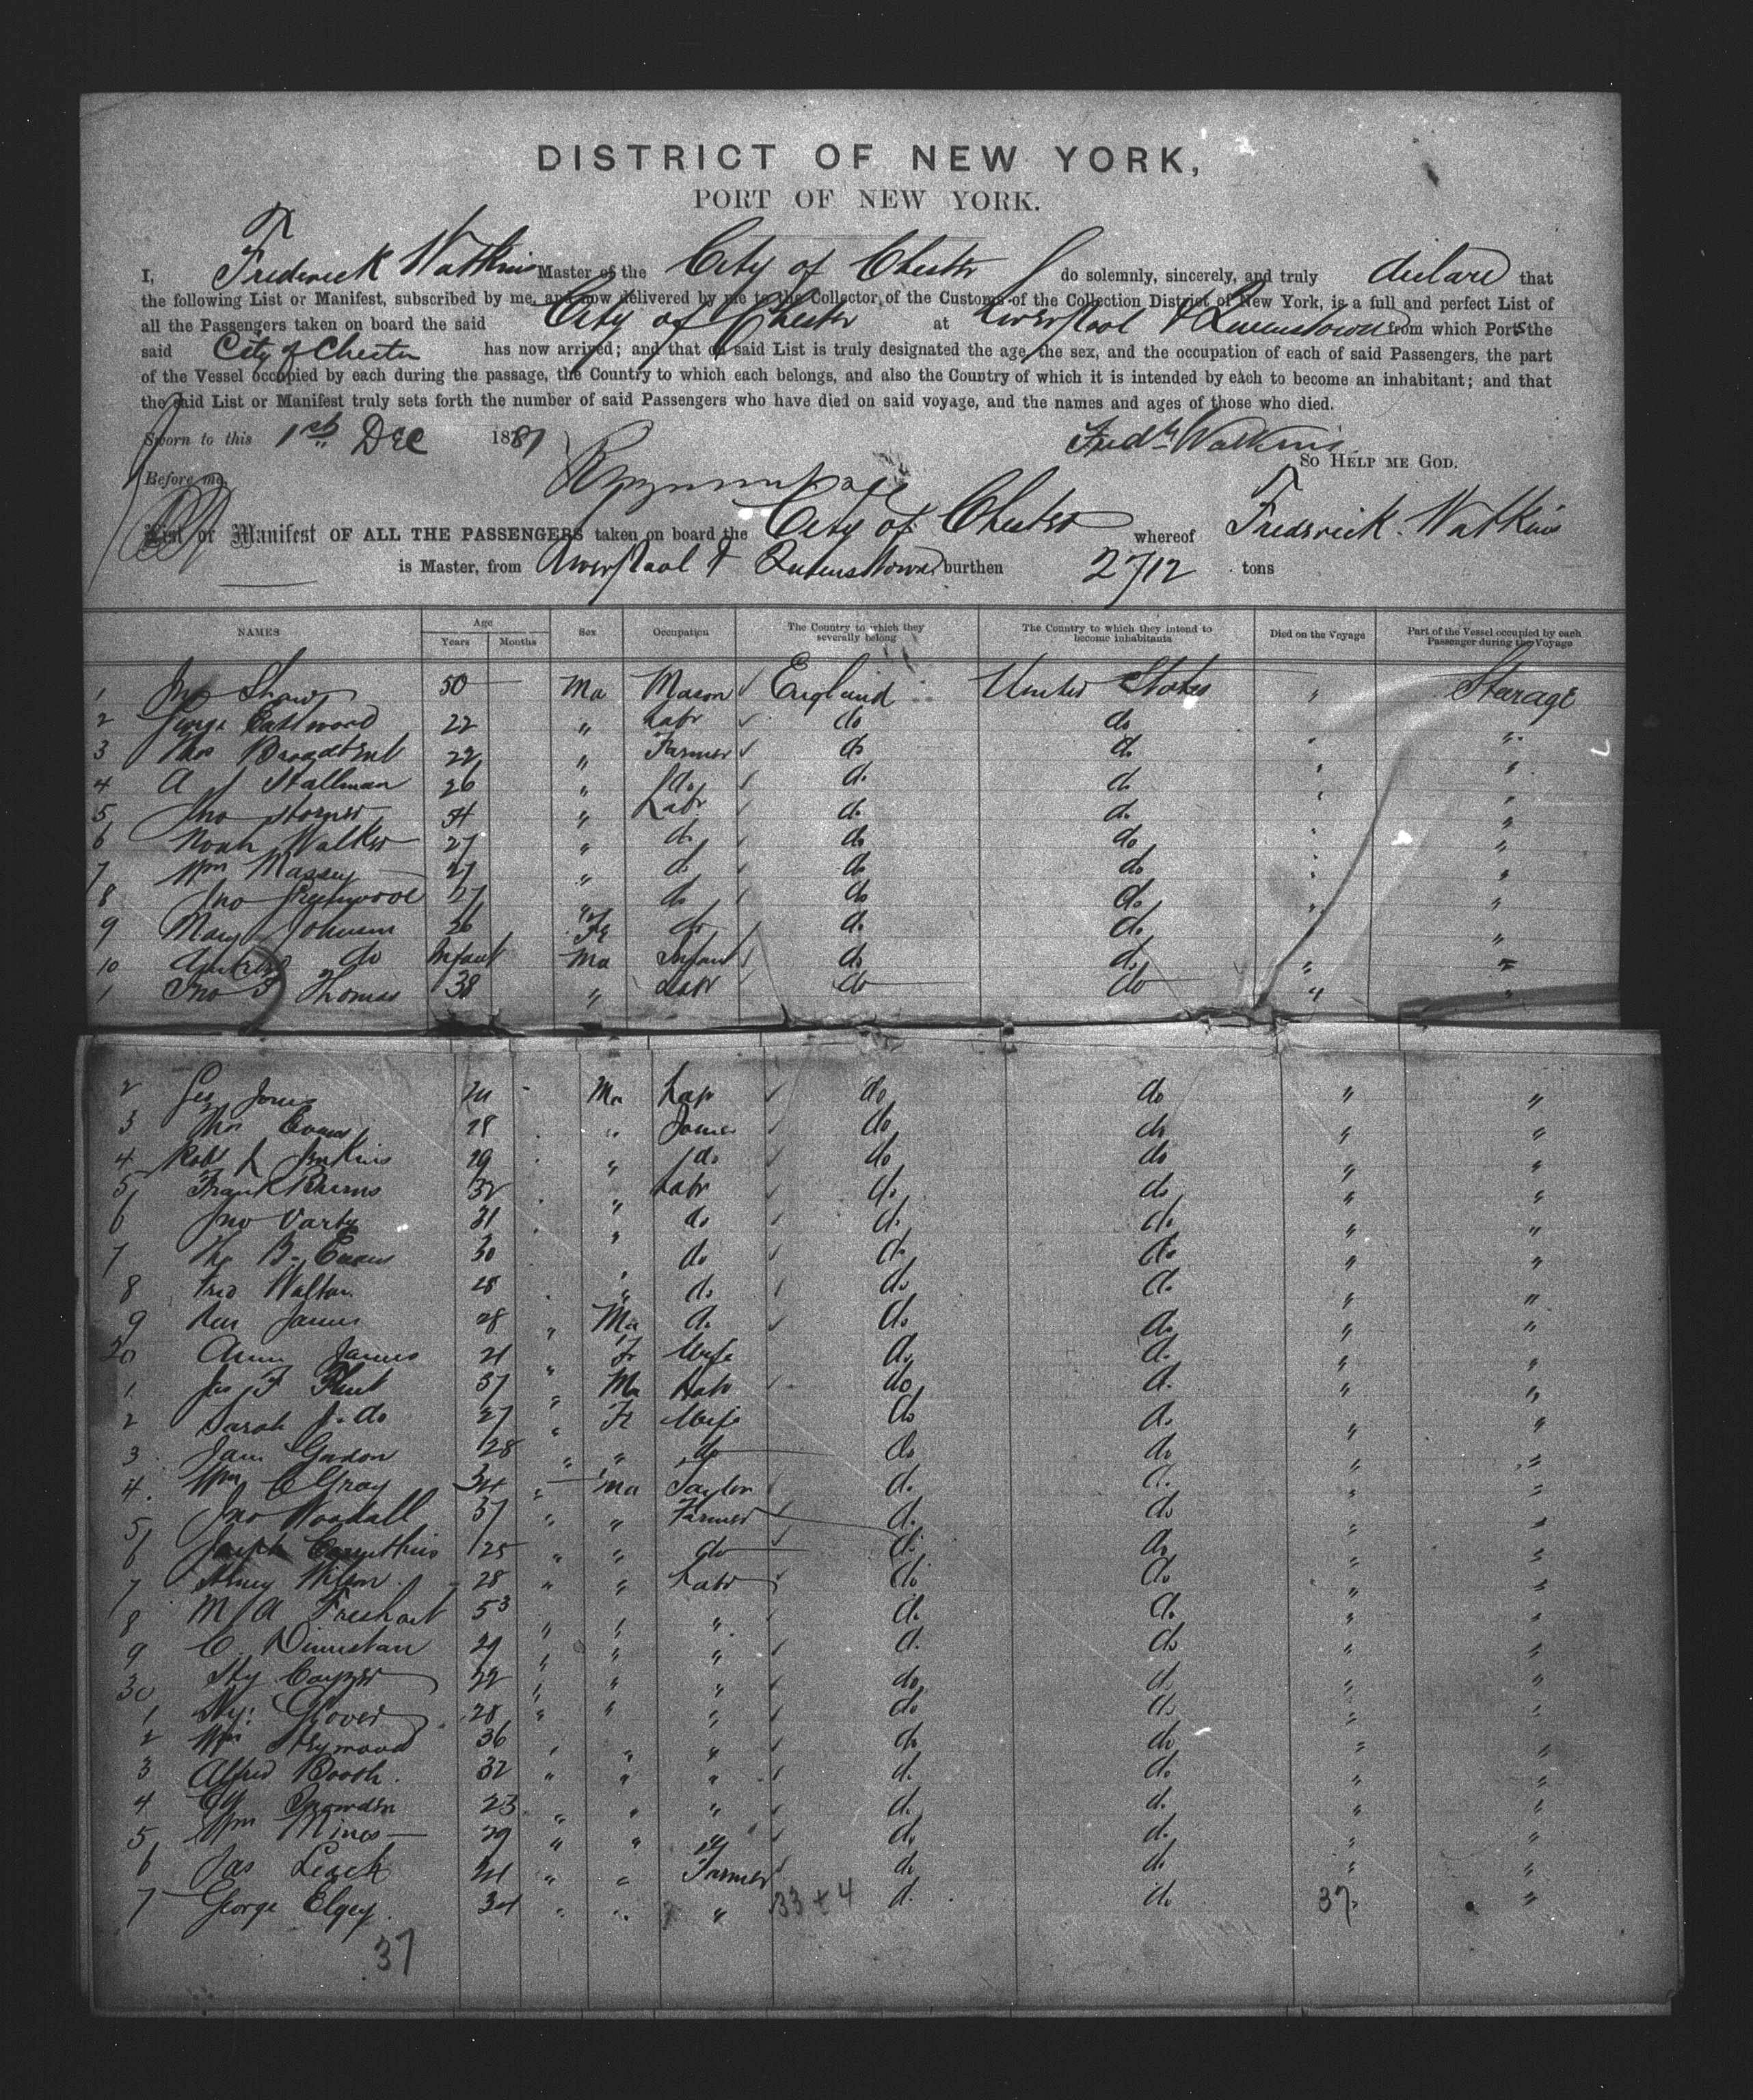 DISTRICT OF NEW YORK,
PORT OF NEW YORK.
I, Frederick Watkins Master of the City of Chester do solemnly, sincerely, and truly declare that
the following List or Manifest, subscribed by me, and now delivered by me to the Collector of the Customs of the Collection District of New York, is a full and perfect List of
all the Passengers taken on board the said City of Chester at Liverpool & Queenstown from which Ports the
said City of Chester has now arrived; and that on said List is truly designated the age, the sex, and the occupation of each of said Passengers, the part
of the Vessel occupied by each during the passage, the Country to which each belongs, and also the Country of which it is intended by each to become an inhabitant; and that
the said List or Manifest truly sets forth the number of said Passengers who have died on said voyage, and the names and ages of those who died.
Sworn to this 1st Dec 1881 Fredk Watkins
So HELP ME GOD.
Before me,
List or Manifest OF ALL THE PASSENGERS taken on board the City of Chester whereof Frederick Watkins
is Master, from Liverpool & Queenstown burthen 2712 tons
NAMES Age Years Months Sex Occupation The Country to which they severally belong The Country to which they intend to become inhabitants Died on the Voyage Part of the Vessel occupied by each Passenger during the Voyage
1 Jno Shaw 50 Ma Mason England United States " Starage
2 George Eastwood 22 " Labr do do " "
3 Thos Broadbent 22 " Farmer do do " "
4 A J Stallman 26 " do do do " "
5 Jno 54 " Labr do do " "
6 Noah Walker 27 " do do do " "
7 Wm Massey 27 " do do do " "
8 Jno Greenwood 27 " do do do " "
9 Mary Johnson 26 Fe do do do "
10 do Infant Ma Infant do do " "
1 Jno T Thomas 38 " Labr do do " "
2 Geo Jones Ma Labr do do " "
3 Thos Evans 28 " Joiner do do " "
4 Robt L Jenkins 29 " do do do " "
5 Frank Burns 32 " Labr do do " "
6 Jno Varty 31 " do do do " "
7 Tho B. Evans 30 do do do " "
8 Fred Walton 28 " do do do " "
9 James 28 " Ma do do do " "
20 Ann James 21 " Fe Wife do do " "
1 Jas F Flint 37 " Ma Labr do do " "
2 Sarah J. do 27 " Fe Wife do do " "
3 Jane Gadon 28 " " do do do " "
4 Wm C Gray 34 " Ma Taylor do do " "
5 Jno Woodall 37 " " Farmer do do " "
6 Joseph 25 " " do do do " "
7 Wilson 28 " " Labr do do " "
8 M A 53 " " " do do " "
9 C. 29 " " " do do " "
30 Hy 22 " " " do do " "
1 Hy Glover 28 " " " do do " "
2 Wm Heymood 36 " " " do do " "
3 Alfred Booth 32 " " " do do " "
4 Snowden 23 " " " do do " "
5 Wm Mines 29 " " " do do " "
6 Jas Leack " " Farmer do do " "
7 George Elgey 34 " " " 33 + 4 do do 37 "
37